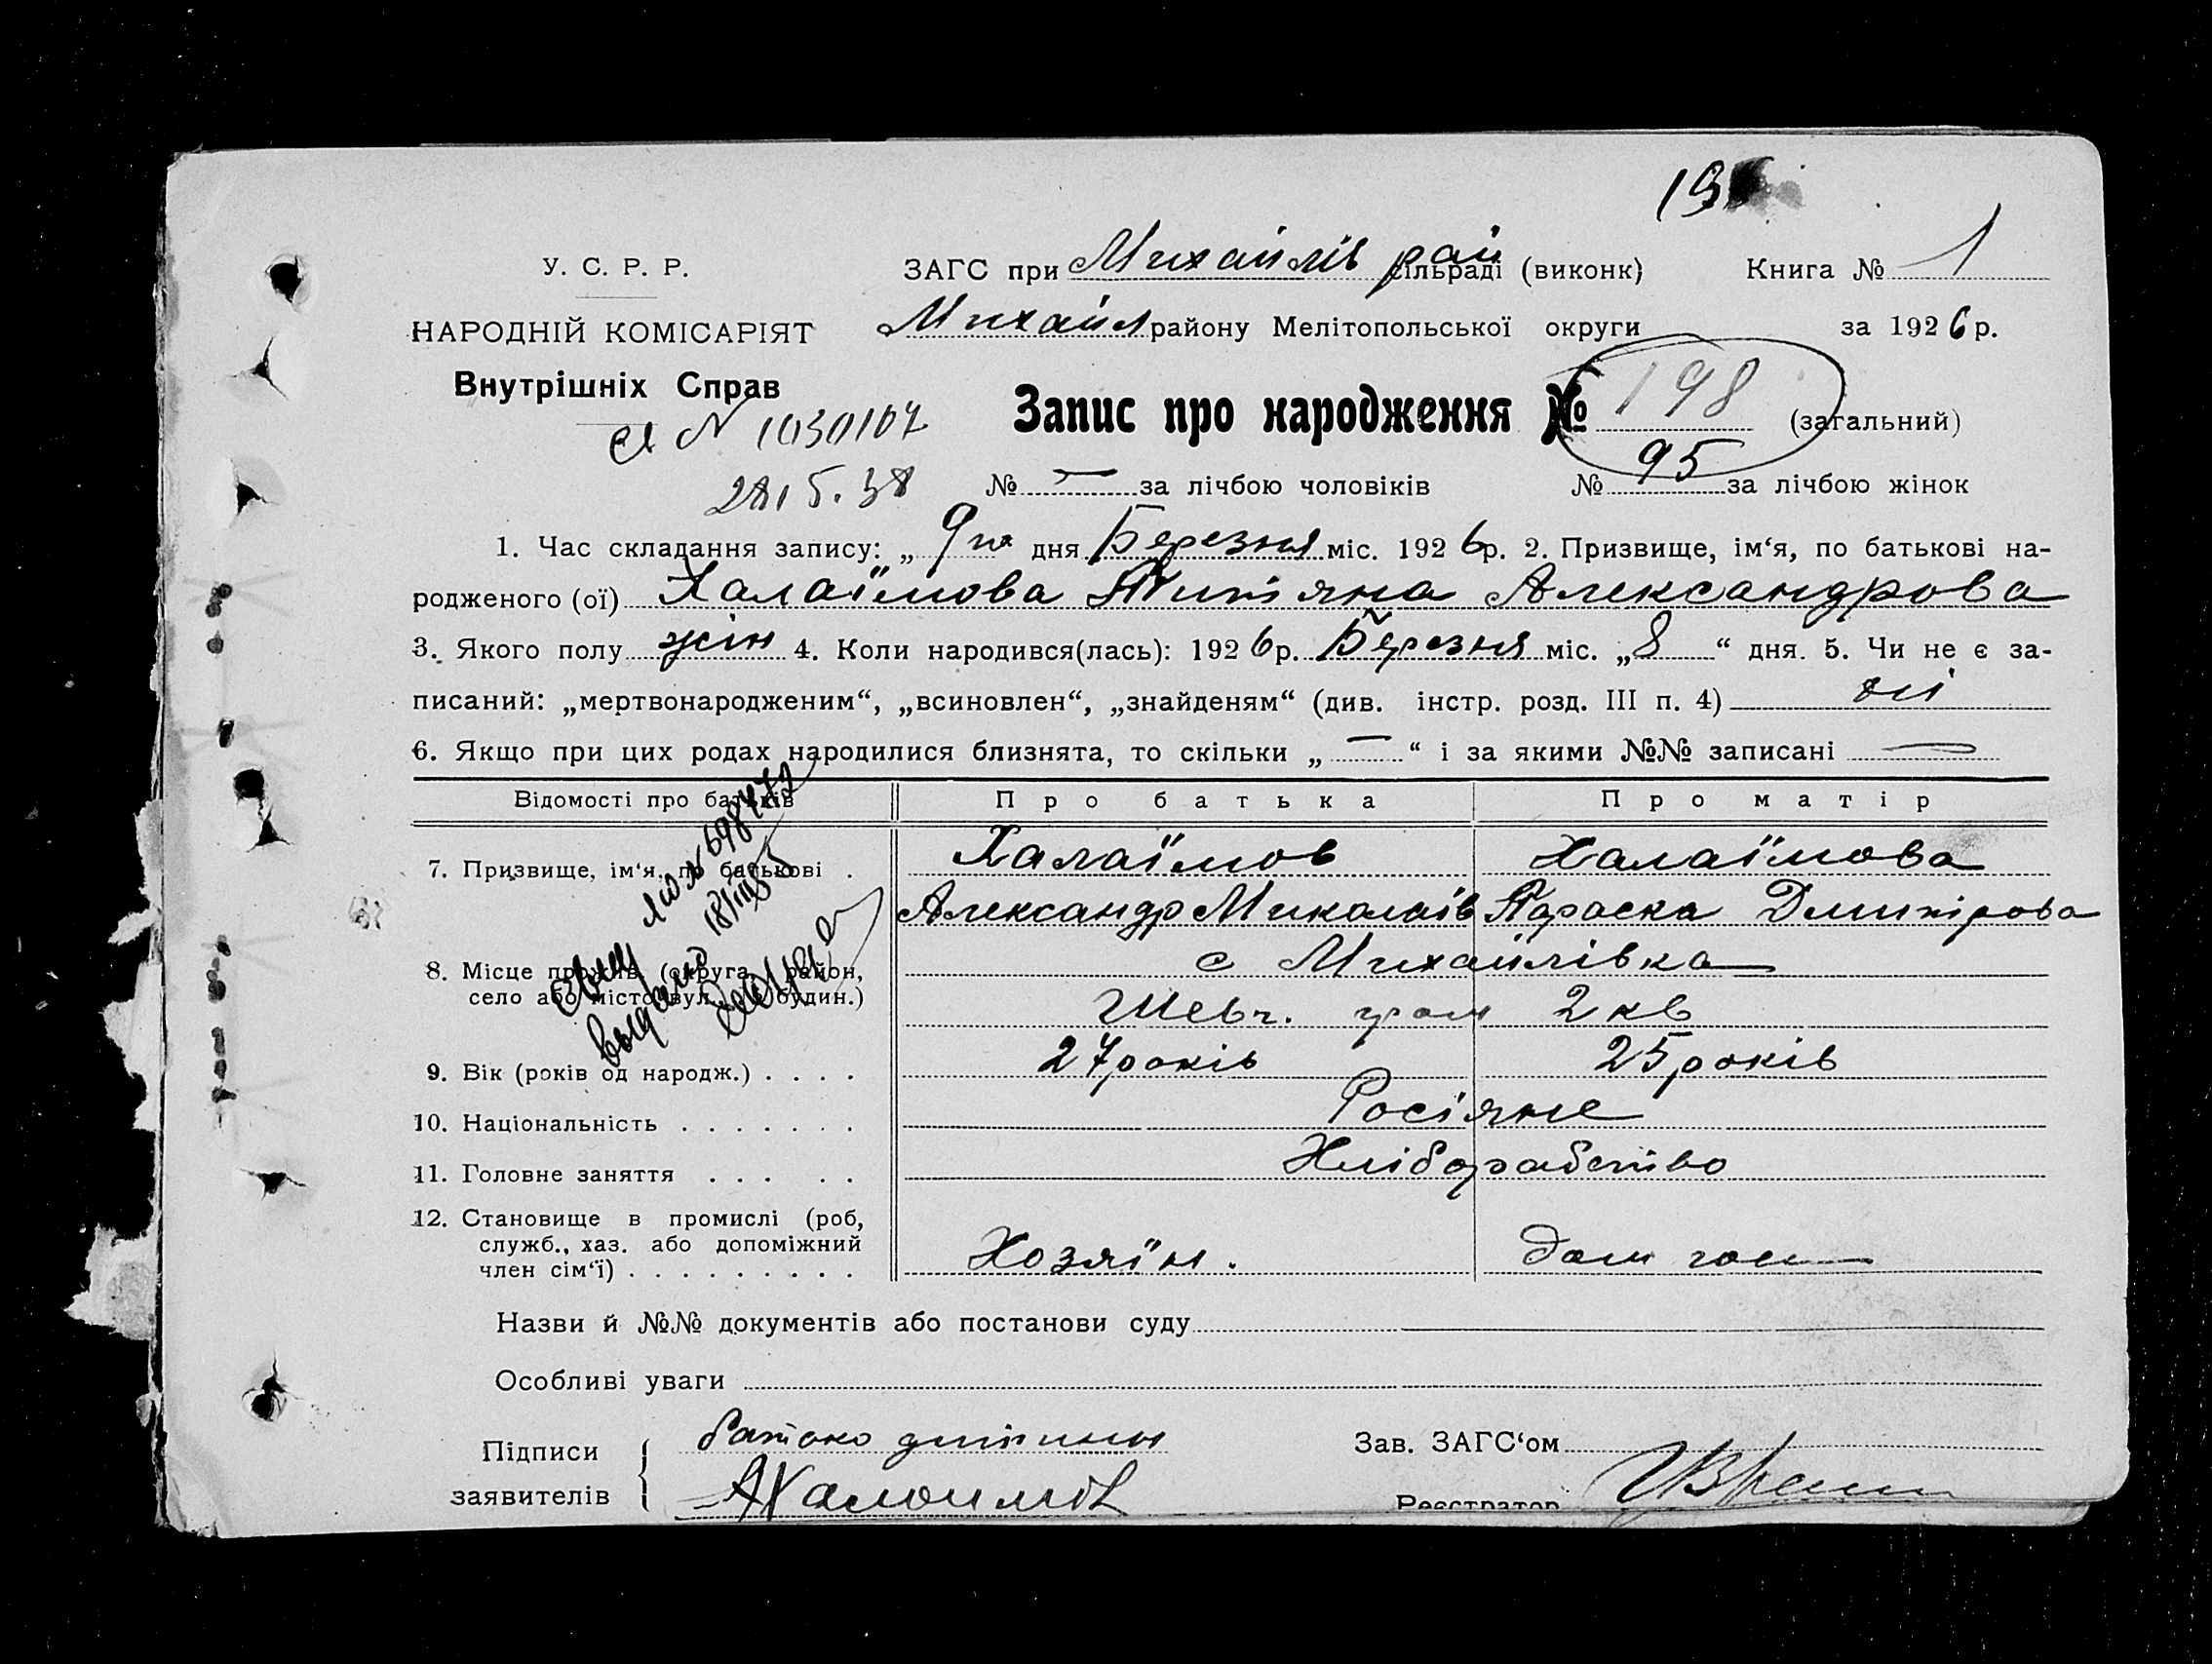 У. С. Р. Р.
ЗАГС при Михайлів рай сільраді (виконк)
Книга № 1
НАРОДНІЙ КОМІСАРІЯТ
Михайл району Мелітопольської округи
за 1926 р.
Внутрішніх Справ
№ 1030107
Запис про народження № 198 (загальний)
№ — за лічбою чоловіків
№ 95 за лічбою жінок
1. Час складання запису: „ 9го дня Березня міс. 1926 р. 2. Призвище, ім‘я, по батькові на-
родженого (ої) Халаїмова Титяна Александрова
3. Якого полу жін 4. Коли народився(лась): 1926 р. Березня міс. „ 8 “ дня. 5. Чи не є за-
писаний: „мертвонародженим“, „всиновлен“, „знайденям“ (див. інстр. розд. III п. 4) ні
6. Якщо при цих родах народилися близнята, то скільки „ — “ і за якими №№ записані —
Відомості про батьків
Про батька
Про матір
7. Призвище, ім‘я, по батькові .
Халаїмов
Халаїмова
Александр Миколаїв
Параска Дмитрова
8. Місце прожив. (округа, район,
село або місто, вул., № будин.)
с Михайлівка
Шевч. гром 2 кв
9. Вік (років од народж.) . . . .
27 років
25 років
10. Національність . . . . . . .
Росіяне
11. Головне заняття . . . . .
Хліборабство
12. Становище в промислі (роб,
служб., хаз. або допоміжний
член сім‘ї) . . . . . . . . .
Хозяїн.
дом гос
№ 698472
выдано
Назви й №№ документів або постанови суду
Особливі уваги
Підписи
заявителів
батько дитини
АХалоимов
Зав. ЗАГС‘ом
Реєстратор